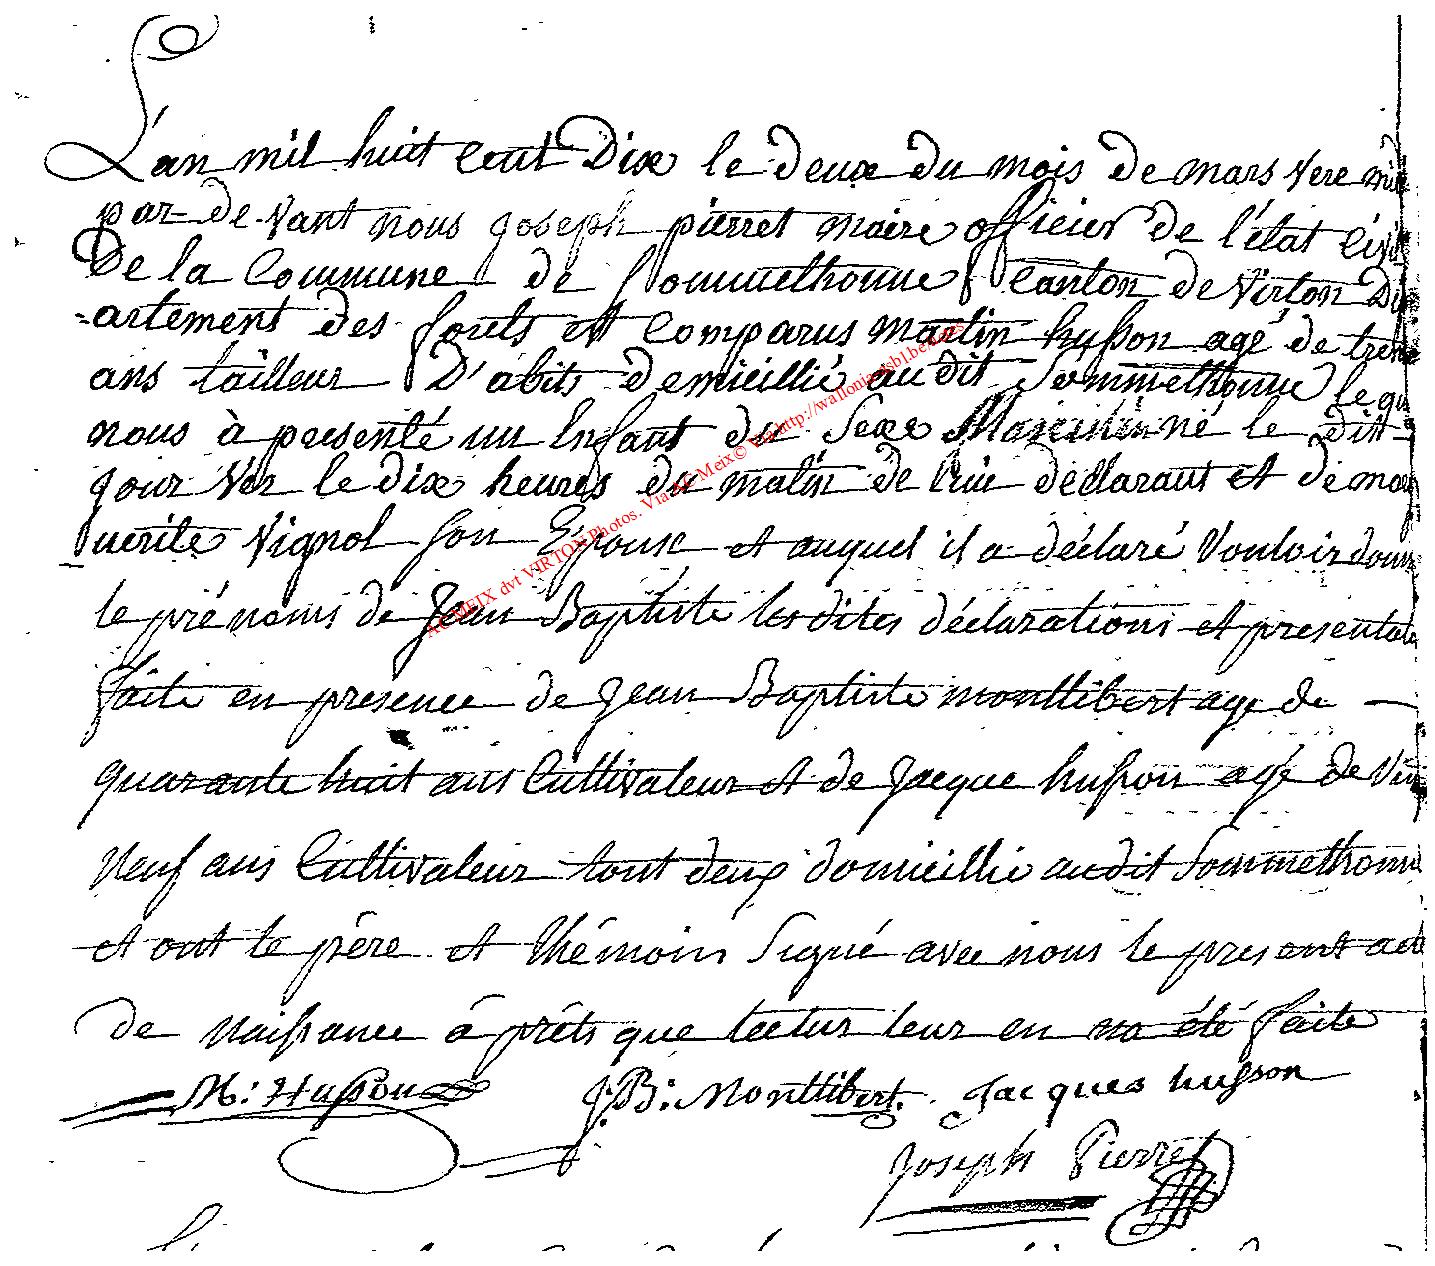 L'an mil huit cent Dix le deux du mois de mars vere mid
par de vant nous joseph pierret maire officier de l'état civil
De la Commune de Sommethonne Canton de Virton Dé
-artement des forets est Comparus martin husson agé de trente
ans tailleur D'abits demicillié audit Sommethonne le qu
nous à presenté un Enfant du Sexe Masculin né le dit
jour ver le dix heures du matin de luie déclarant et de mar
uerite Vignol son Epouse et auquel il a déclaré Vouloir donn
le pré noms de Jean Baptiste les dites déclarations et presentat
faite en presence de Jean Baptiste monttibert age de
quarante huit ans Cultivateur et de Jacque husson agé de Vin
Neuf ans Cultivateur tout deux domicillie audit Sommethonne
et ont le père et thémoin Signé avec nous le present acte
de naissance à prêts que lectur leur en na été faite
M: Husson J: B: Monttibert. Jacques husson
Joseph Pierret
AC MEIX dvt VIRTON Photos. Via AC Meix© Via http://wallonia.